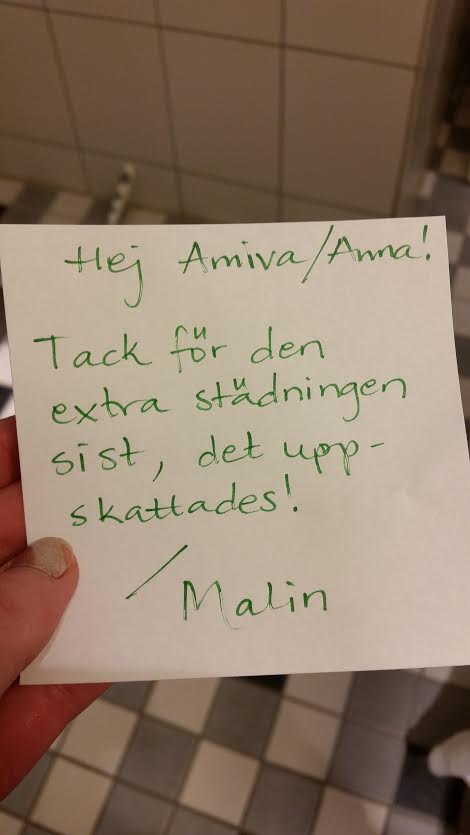 Hej Amiva/Anna!
Tack för den
extra städningen
sist, det upp-
skattades!
/Malin